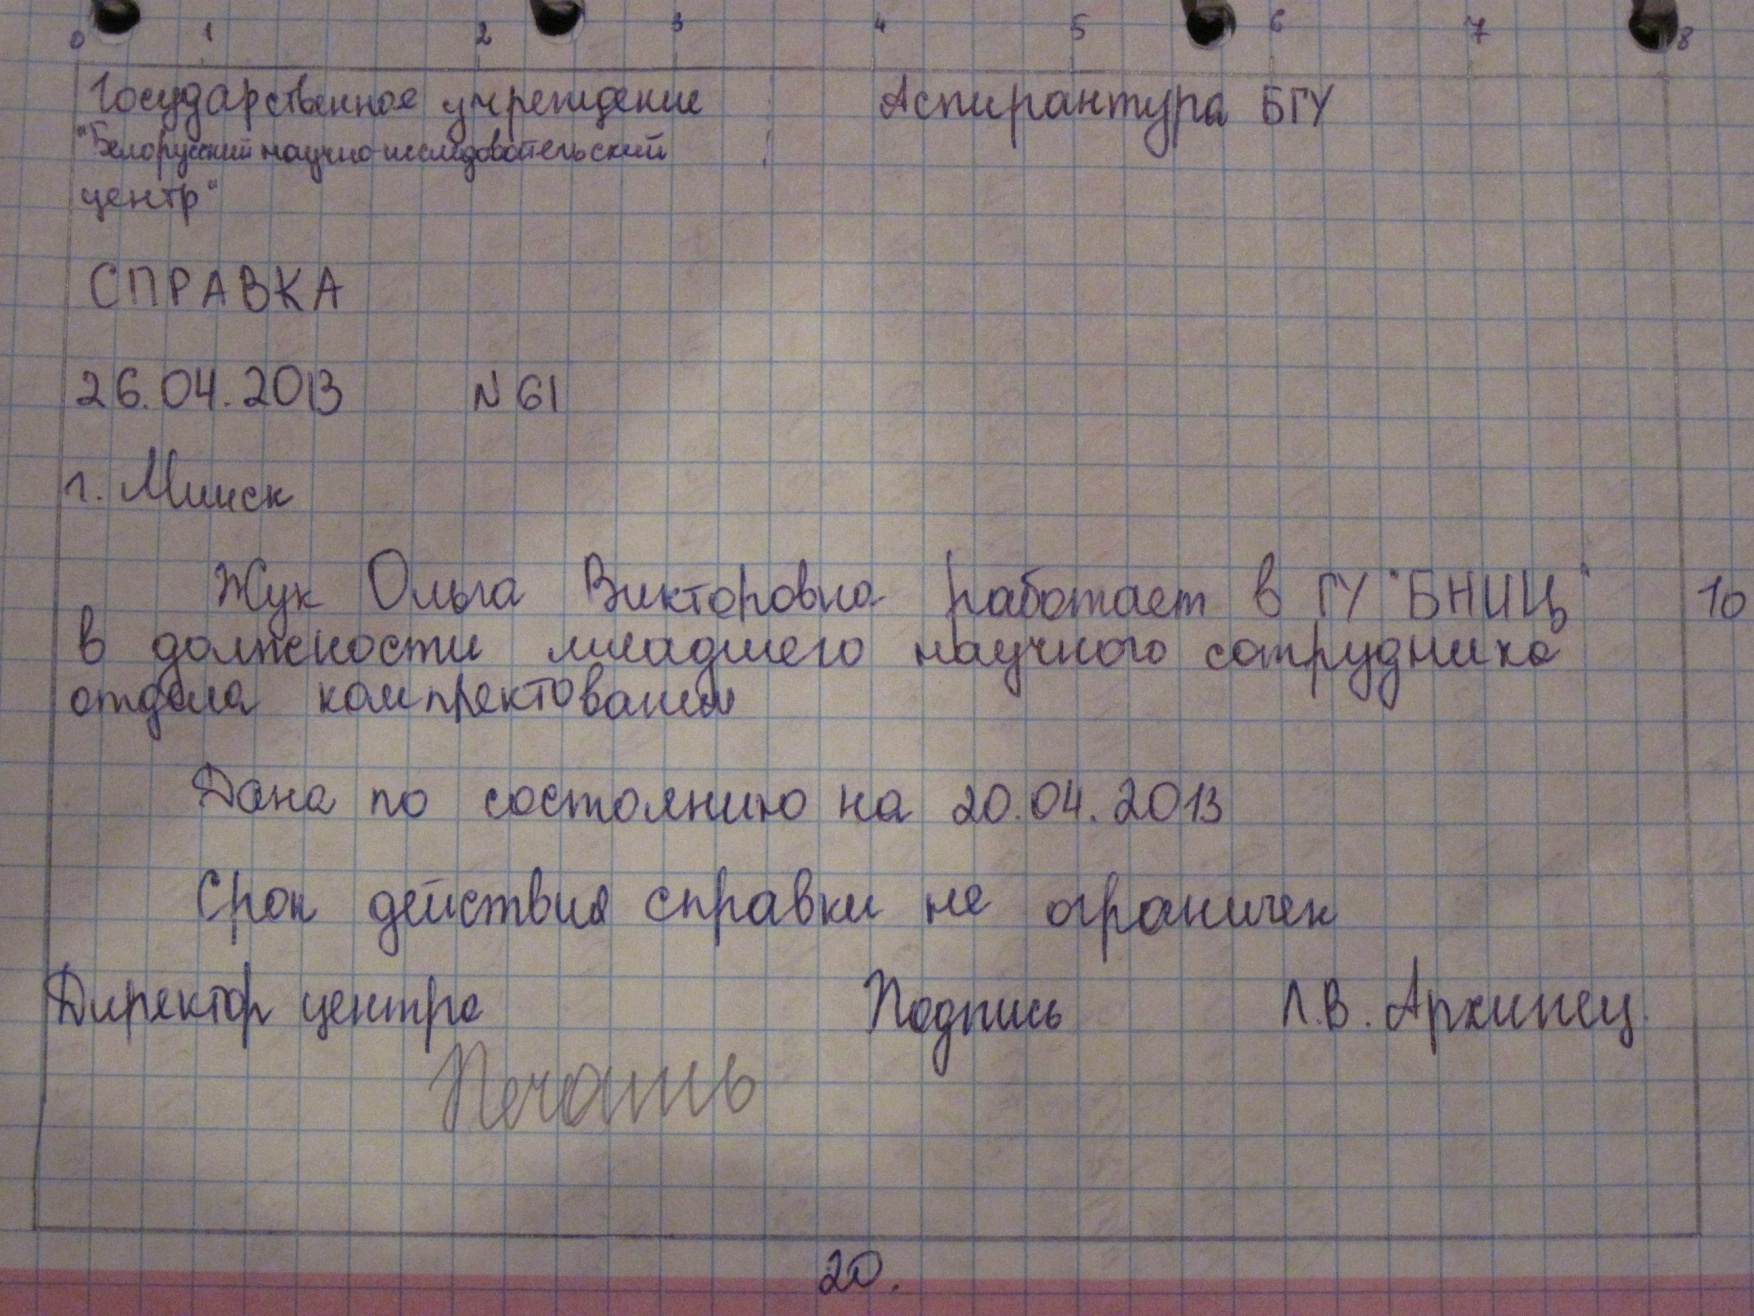 0 1 2 3 4 5 6 7 8
Государственное учреждение
"Белорусский научно-исследовательский
центр"
Аспирантура БГУ
СПРАВКА
26.04.2013 N 61
г. Минск
Жук Ольга Викторовна работает в ГУ "БНИЦ" 10
в должности младшего научного сотрудника
отдела компректования
Дана по состоянию на 20.04.2013
Срок действия справки не ограничен
Директор центра Подпись Л.В. Архипец
Печать
20.